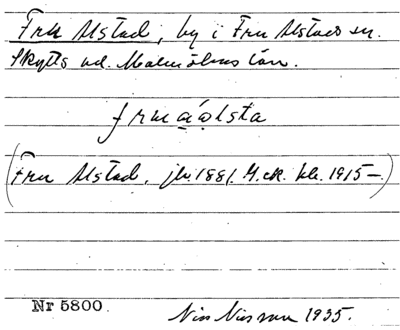 Fru Alstad, by i Fru Alstads sn.
Skytts hd. Malmöhus län.
fruaálsta
(Fru Alstad, jb. 1881. M. ek. bl. 1915–.)
Nr 5800.
Nils Nilsson 1935.